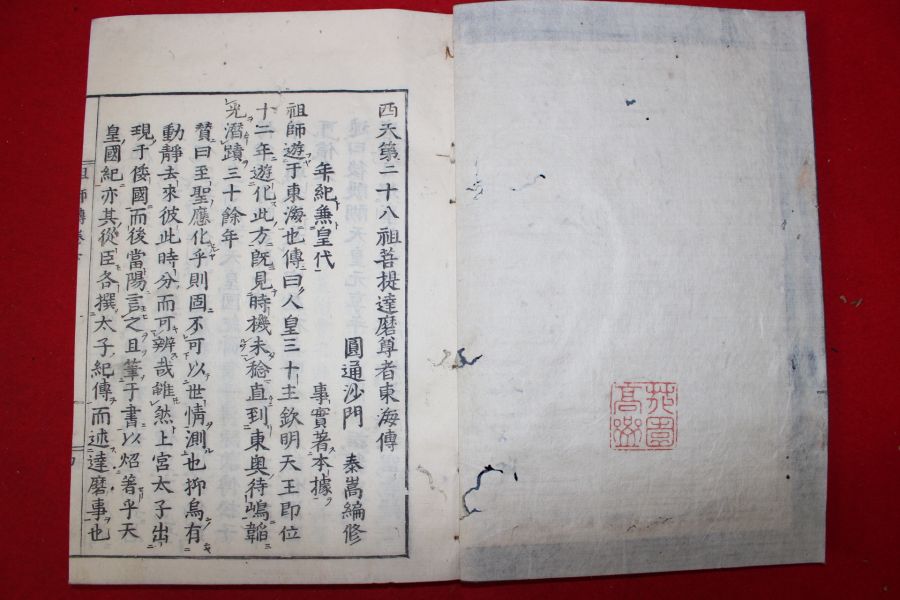 西天第二十八祖菩提達磨尊者東海傳
圓通沙門　秦嵩編修
年紀無皇代　事實著本據
祖師遊于東海也傳曰人皇三十主欽明天王即位
十二年遊化此方既見時機未稔直到東奧待嶋韜
光潛蹟三十餘年
賛曰至聖應化乎則固不可以世情測也抑烏有
動靜去來彼此時分而可辨哉雖然上宮太子出
現于倭國而後當陽言之且筆于書以炤著乎天
皇國紀亦其從臣各撰太子紀傳而述達磨事也
祖師傳卷